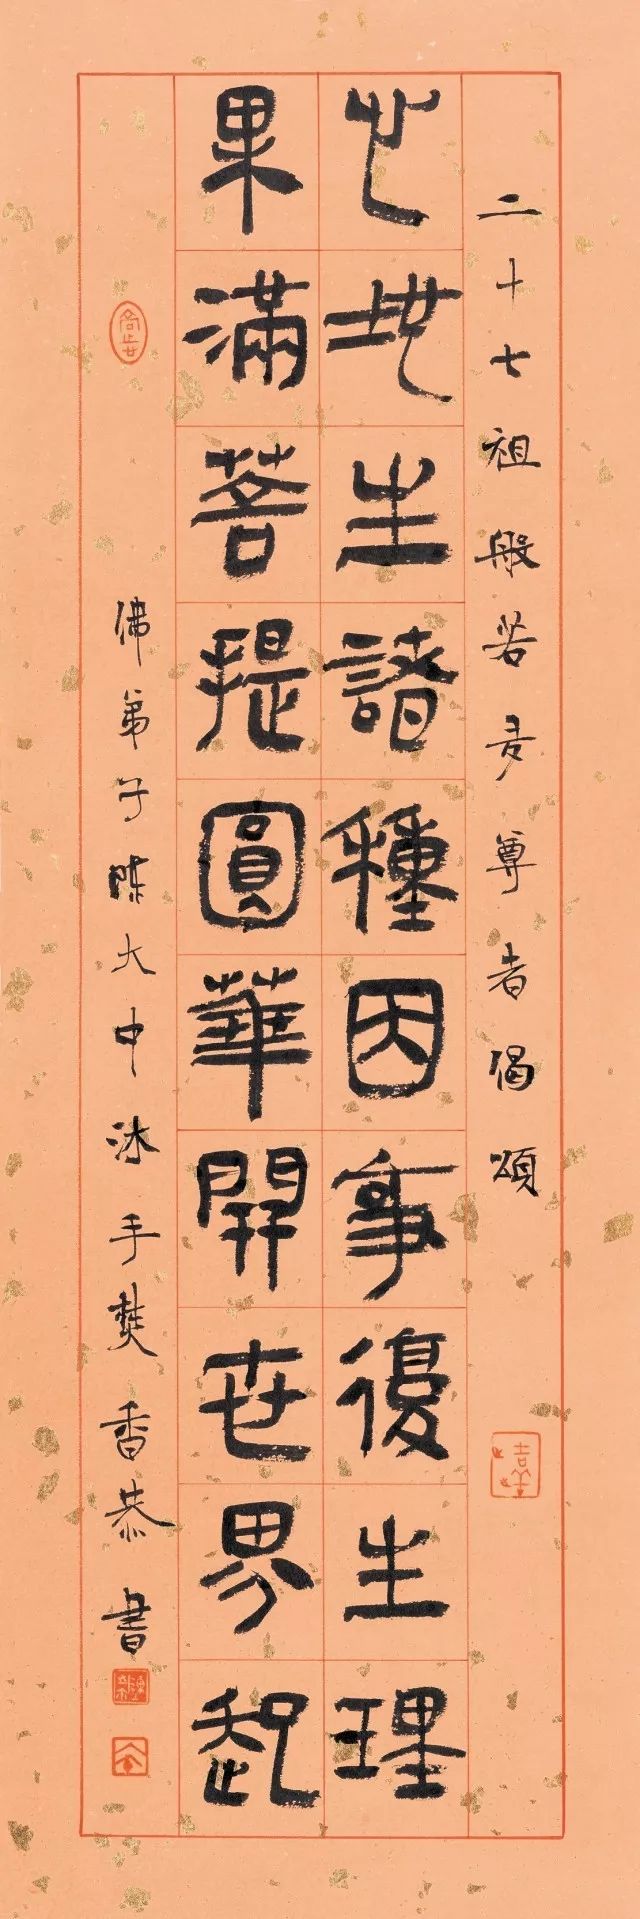 二十七祖般若多尊者偈頌
吉羊
心地生諸種因事復生理
果滿菩提圓華開世界起
佛弟子陳大中沐手焚香恭書